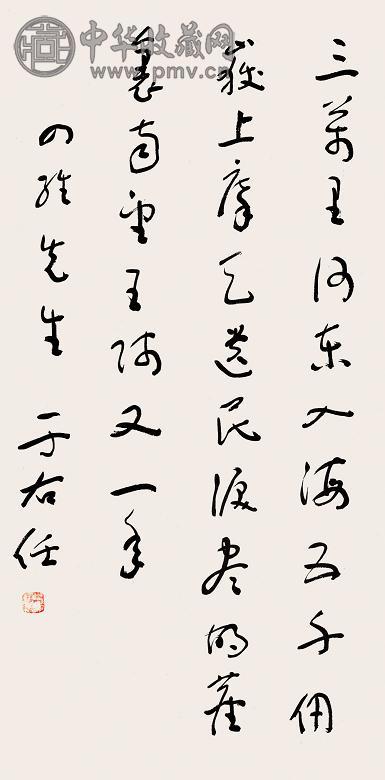 中华收藏网
www.pmv.cn
三萬里河東入海五千仞
嶽上摩天遺民淚盡胡塵
裏南望王師又一年
四維先生 于右任